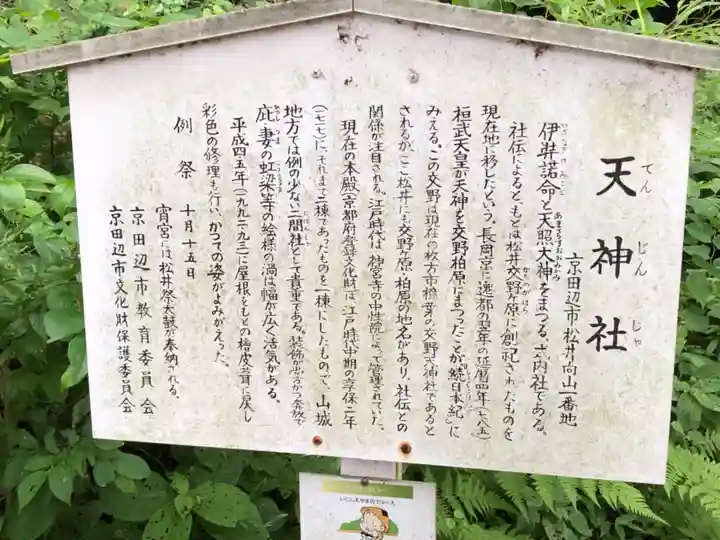 天神社
てんじんじゃ
京田辺市松井向山一番地
伊弉諾命と天照大神をまつる。式内社である。
社伝によると、もとは松井交野ヶ原に創祀されたものを
現在地に移したという。長岡京に遷都の翌年の延暦四年（七八五）
桓武天皇が天神を交野柏原にまつったことが『続日本紀』に
みえる。この交野は現在の枚方市樟葉の交野天神社であると
されるが、ここ松井にも交野ヶ原・柏原の地名があり、社伝との
関係が注目される。江戸時代は神宮寺の中性院によって管理されていた。
現在の本殿（京都府登録文化財）は、江戸時代中期の享保二年
（一七一七）に、それまで二棟であったものを一棟にしたもので、山城
地方では例の少ない二間社として貴重である。装飾が思いきつて奔放で
庇・妻の虹梁等の絵様の渦は幅が広く活気がある。
平成四・五年（一九九二・九三）に屋根をもとの檜皮葺に戻し
彩色の修理も行い、かつての姿がよみがえった。
例祭　十月十五日
宵宮には松井祭太鼓が奉納される。
京田辺市教育委員会
京田辺市文化財保護委員会